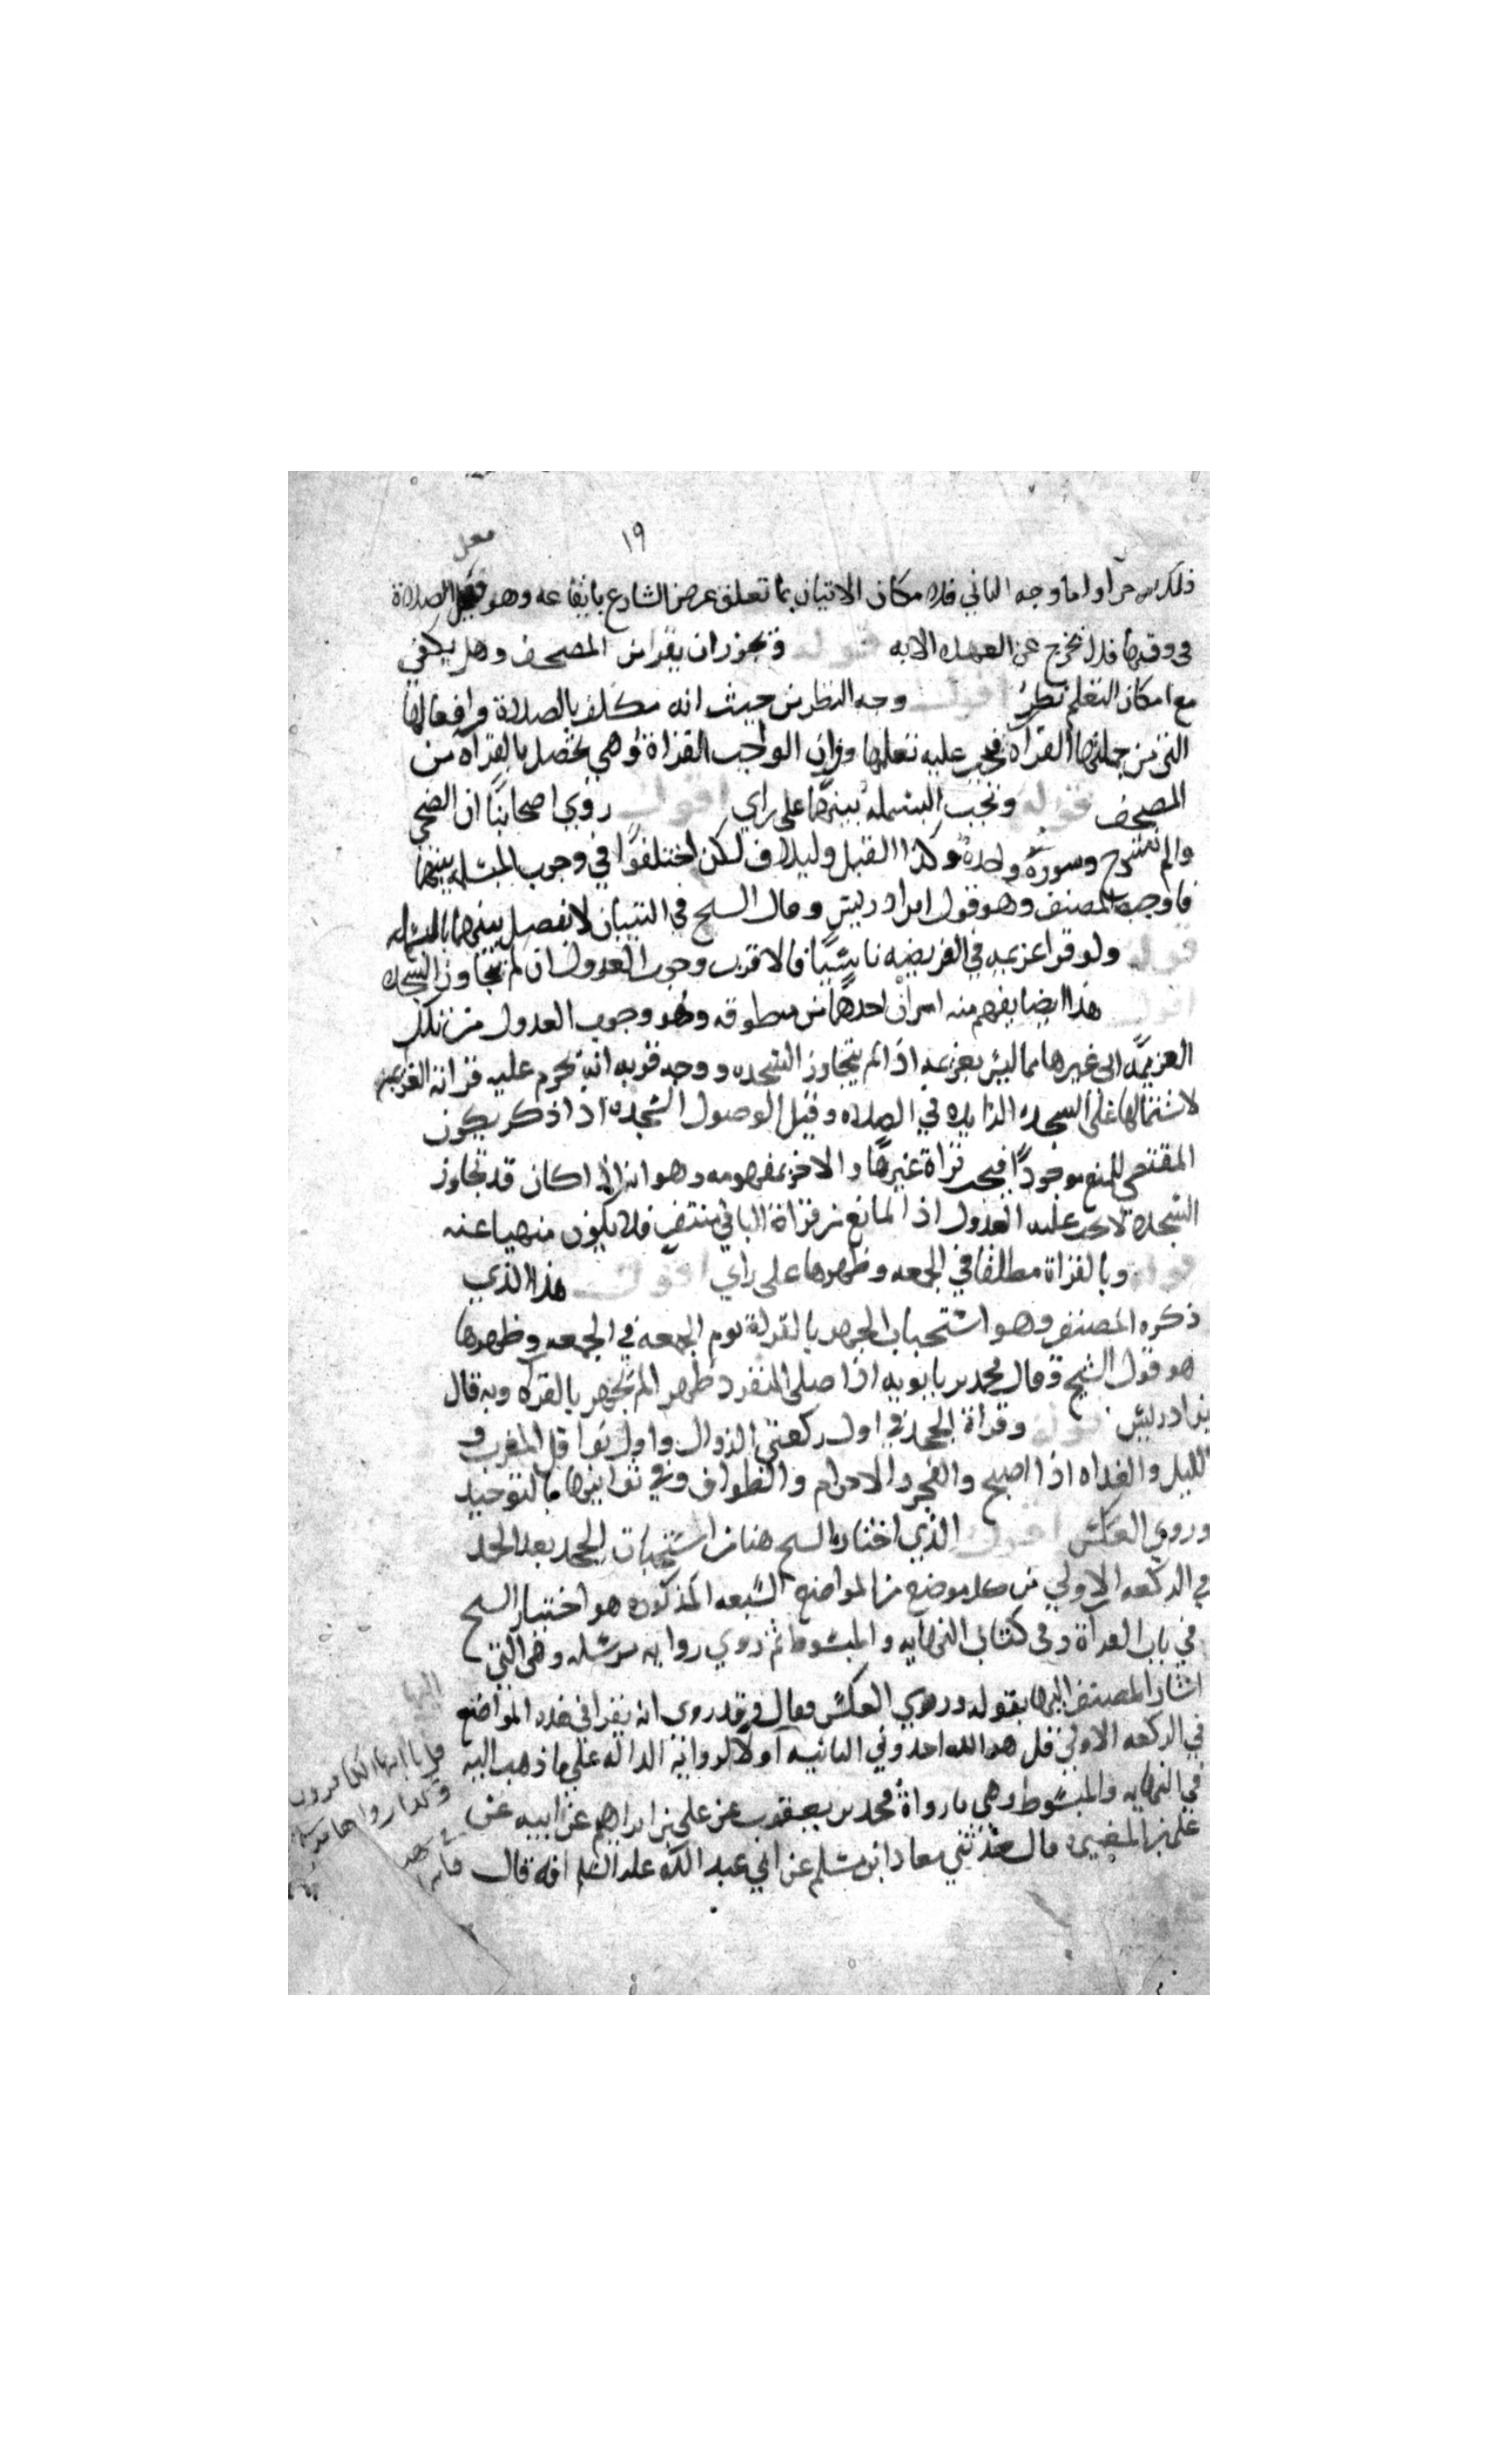 ١٩
فعل
واما وجه الثاني فلامكان الاتيان بما تعلق غرض الشارع بايقاعه وهو فعل الصلاة
في وقتها فلا نخرج عن العهده الا به قوله ويجوز ان يقرا من المصحف وهل يكفي
مع امكان التعلم نظر اقول وجه النظر من حيث انه مكلف بالصلاة وافعالها
التي من جملتها القراه فيجب عليه تعلمها وان الواجب القراة وهي تحصل بالقراه من
المصحف قوله وتجب البسمله بينهما على راي اقول روي اصحابنا ان الضحى
والم نشرح سورة واحدة وكذا الفيل ولايلاف لكن اختلفوا في وجوب البسمله بينهما
فاوجبه المصنف وهو قول ابن ادريس وقال الشيخ في التبيان لا يفصل بينهما بالبسمله
قوله ولو قرا عزيمه في الفريضه ناسيا فالاقرب وجوب العدول ان لم يتجاوز السجده
اقول هذا ايضا يفهم منه امران احدهما من منطوقه وهو وجوب العدول من تلك
العزيمه الى غيرها مما ليس بعزيمه اذا لم يتجاوز السجده ووجه قربه انه تحرم عليه قراة العزيمه
لاشتمالها على السجده الزايده في الصلاه وقبل الوصول السجده اذا ذكر يكون
المقتضي للمنع موجودا فيجب قراة غيرها والاخر بمفهومه وهو انه اذا كان قد تجاوز
السجده لا يجب عليه العدول اذ المانع من قراة الباقي منتف فلا يكون منهيا عنه
قوله وبالقراة مطلقا في الجمعه وظهرها على راي اقول هذا الذي
ذكره المصنف وهو استحباب الجهر بالقراة يوم الجمعه في الجمعه وظهرها
هو قول الشيخ وقال محمد بن بابويه اذا صلى المنفرد ظهرا لم يجهر بالقراه وبه قال
بن ادريس قوله وقراة الجحد في اول ركعتي الزوال واول نوافل المغرب و
الليل والغداه اذا اصبح والفجر والاحرام والطواف وفي ثوانيها بالتوحيد
وروي العكس اقول الذي اختاره الشيخ هنا من استحباب الجحد بعد الحمد
في الركعه الاولي من كل موضع من المواضع السبعه المذكوره هو اختيار الشيخ
في باب القراة وفي كتابي النهايه والمبسوط ثم روي روايه مرسله وهي التي
اشار المصنف اليها بقوله وروي العكس فقال وقد روي انه يقرا في هذه المواضع
في الركعه الاولي قل هو الله احد وفي الثانيه الروايه الداله على ما ذهب اليه
قل يا ايها الكافرون
في النهايه والمبسوط وهي ما رواه محمد بن يعقوب عن علي بن ابراهيم عن ابيه عن
علي بن المغيره قال حدثني معاذ بن مسلم عن ابي عبد الله عليه السلم انه قال